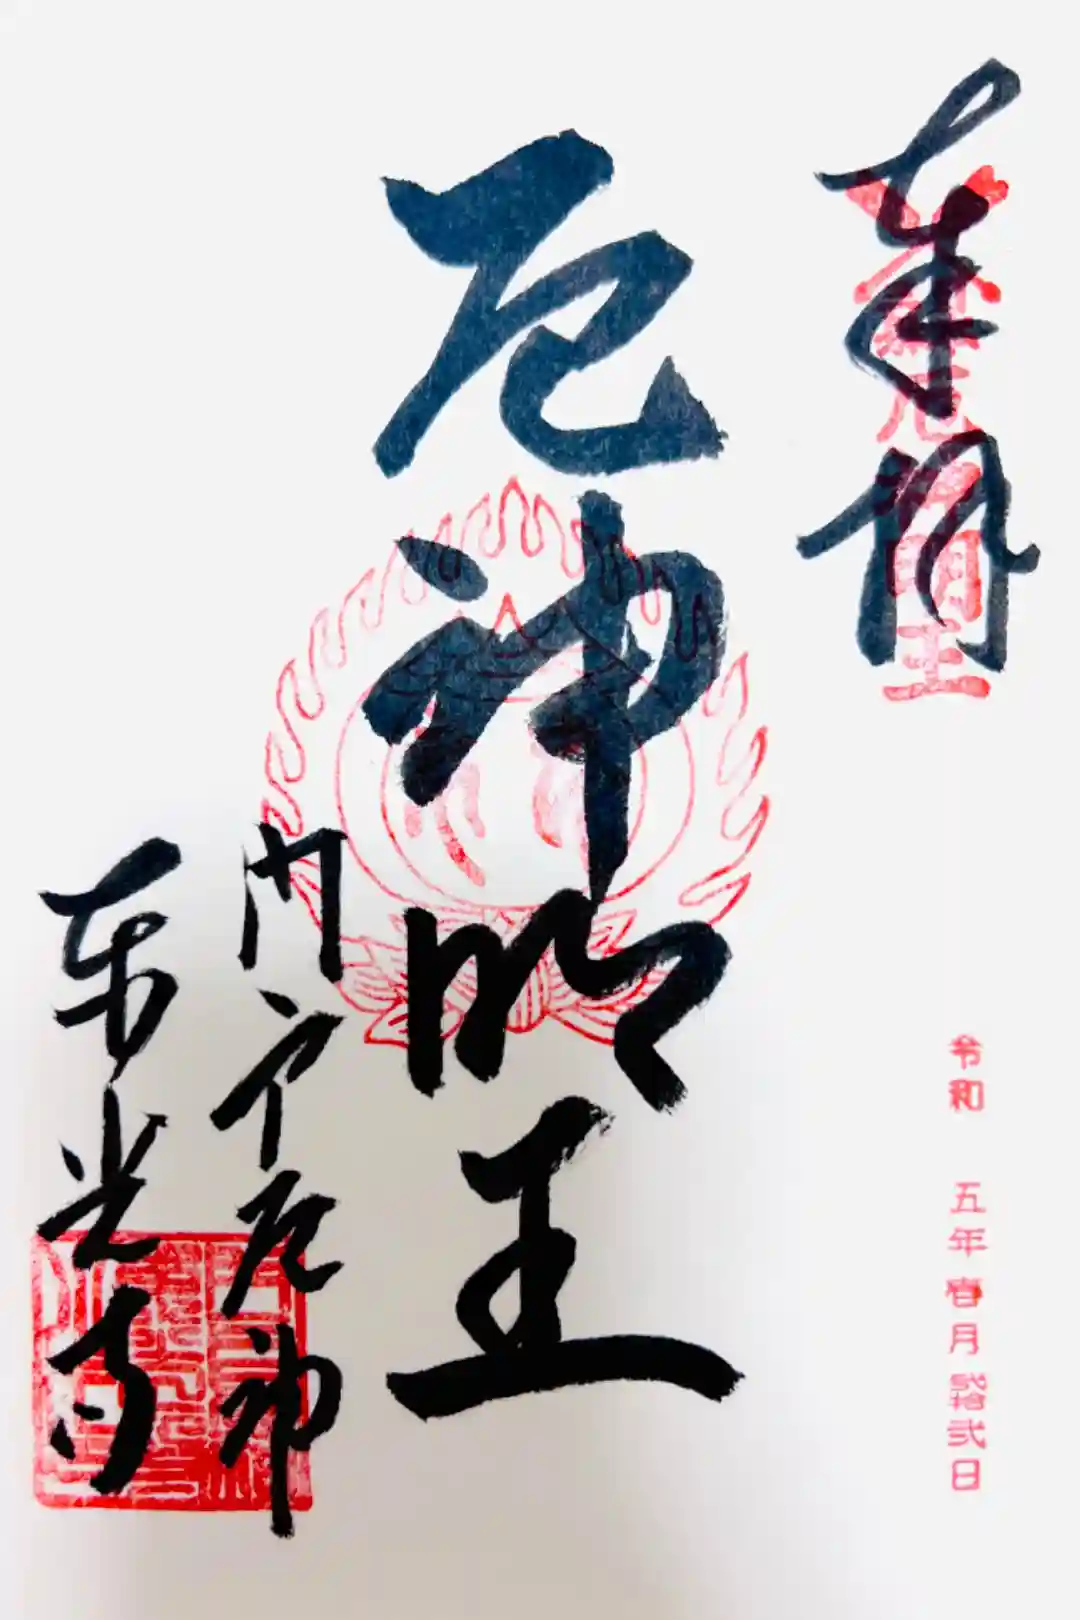 奉拝
厄神明王
門戸厄神
東光寺
令和 五年春月弐拾弐日